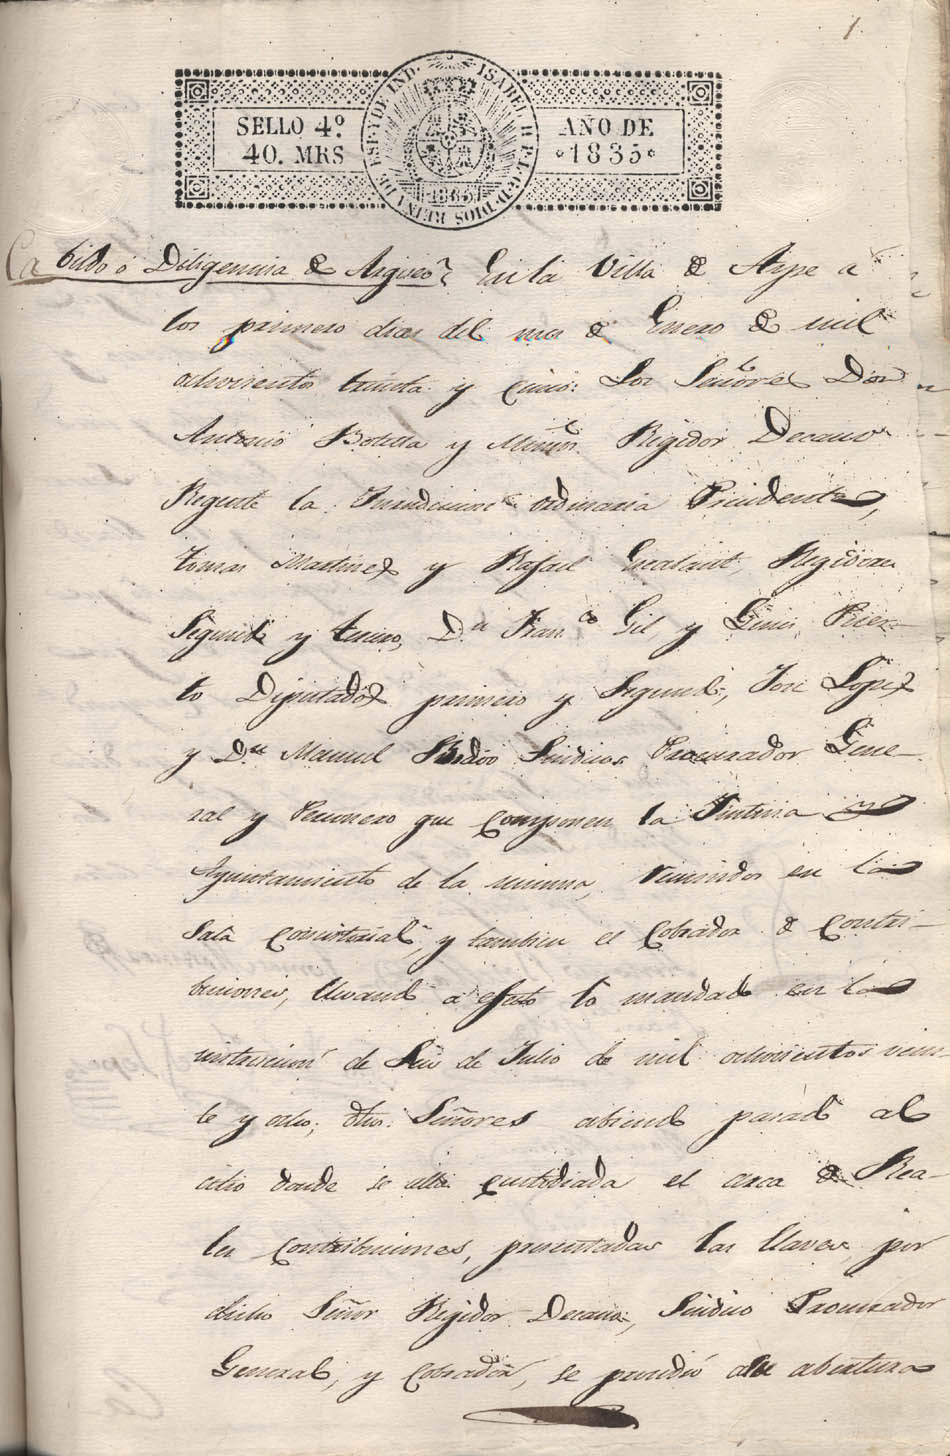 1.
SELLO 4º
40. MRS
ISABEL II P.L.G.D.DIOS REYNA DE ESP.Y DE IND.
1835
AÑO DE
1835
Cabildo ó Diligencia de Arqueo En la Villa de Aspe a
los primero dias del mes de Enero de mil
ochocientos treinta y cinco: Los Señores Don
Antonio Botella y Regidor Decano
Regente la Jurisdicion ordinaria Precidente,
tomas Martinez y Rafael Regidores
Segundo y tercero, Dn Franco Gil, y Gines Puer-
to Diputados primero y Segundo, José Lopez
y Dn Manuel Sindicos Procurador Gene-
ral y Personero que componen la Justicia y
Ayuntamiento de la misma, reunidos en la
Sala Consistorial, y tambien el Cobrador de contri-
buciones, llevando a efecto lo mandado en la
instruccion de Seis de Julio de mil ochocientos vein-
te y ocho, dhos. Señores abiendo pasado al
citio donde se alla custodiada el arca de Rea-
les Contribuciones, presentadas las llaves, por
dicho Señor Regidor Decano, Sindico Procurador
General, y Cobrador, se procedió a su abertura